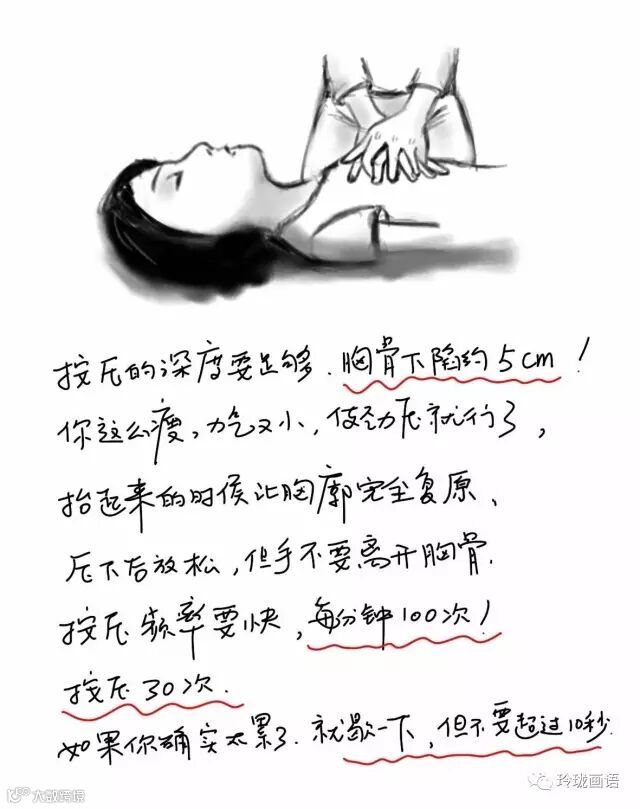 按压的深度要足够、胸骨下陷约5cm!
你这么瘦,力气又小,使劲压就行了,
抬起来的时候让胸廓完全复原、
压下后放松,但手不要离开胸骨.
按压频率要快,每分钟100次!
按压30次.
如果你确实太累了.就歇一下,但不要超过10秒.
大数跨境
玲珑画语